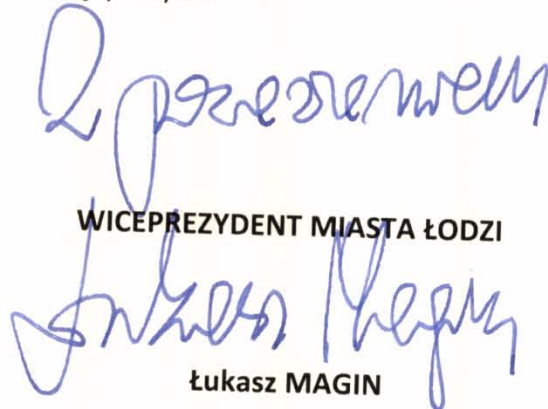 Z poważaniem
WICEPREZYDENT MIASTA ŁODZI
Łukasz Magin
Łukasz MAGIN